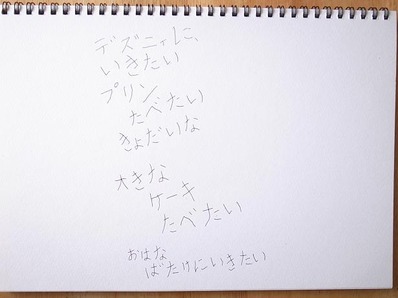 デズニィに、
いきたい
プリン
たべたい
きょだいな
大きな
ケーキ
たべたい
おはな
ばたけにいきたい